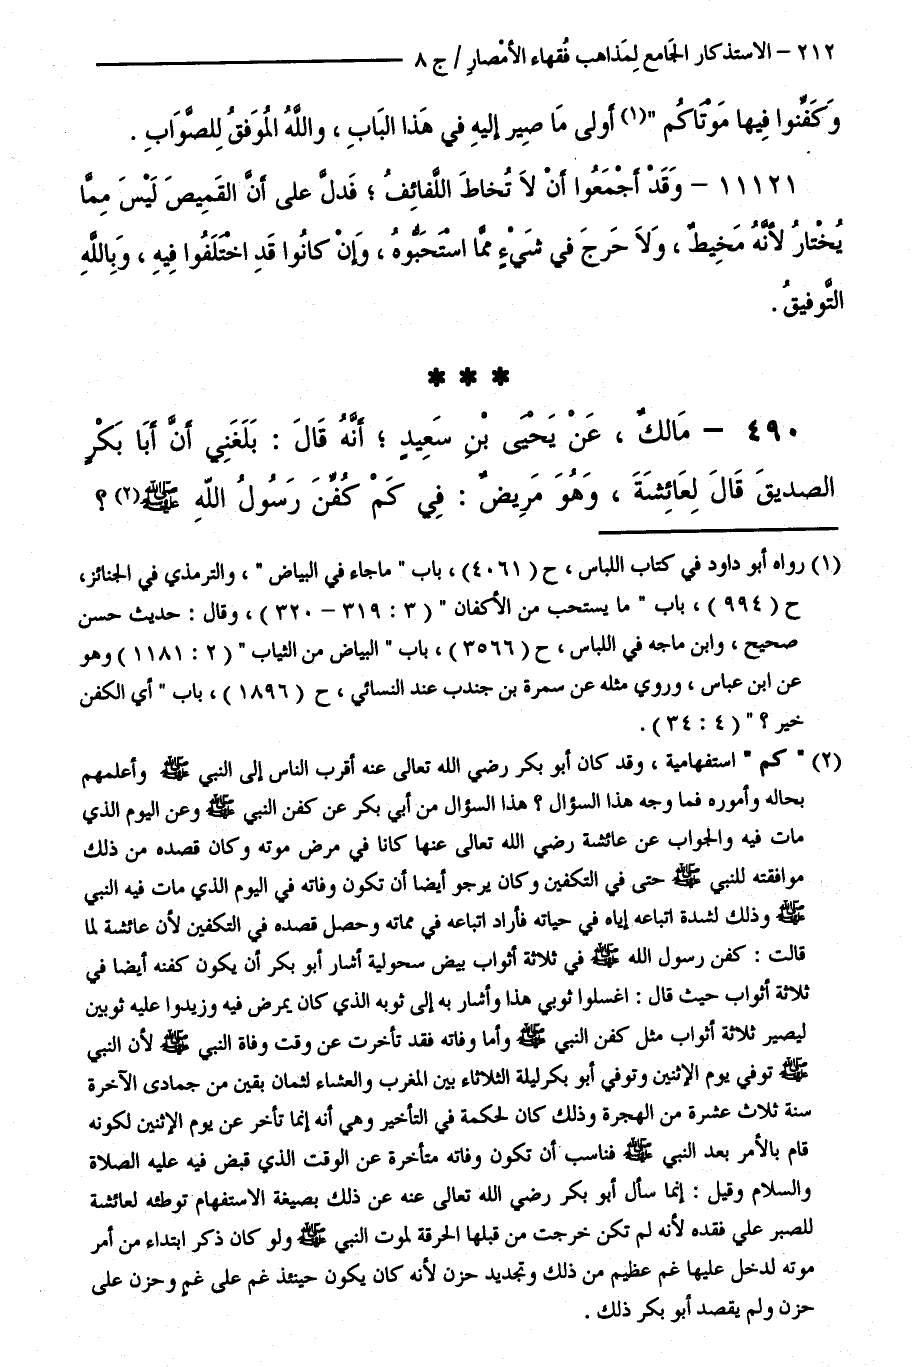 ٢١٢ – الاستذكار الجَامع لِمَذاهب فُقهاء الأمْصارِ / ج ٨
وَكَفِّنوا فِيها مَوْتَاكُم "(١) أولى مَا صِير إليهِ في هَذا البَابِ ، واللَّهُ الُموَفقُ لِلصَّوَابِ .
١١١٢١ – وَقَدْ أجْمَعُوا أنْ لاَ تُخاطَ اللَّفائِفُ ؛ فَدلَّ على أنَّ القَمِيصَ لَيْسَ مِمَّا
يُخْتارُ لأنَّهُ مَخِيطٌ ، وَلاَ حَرجَ في شيَءٍ ممَّا اسْتَحَبُّوهُ ، وَإنْ كانُوا قَدِ اخْتَلَفُوا فِيهِ ، وَبِاللَّهِ
التَّوفيقُ .
* * *
٤٩٠ – مَالكٌ ، عَنْ يَحْيَى بْنِ سَعِيدٍ ؛ أنَّهُ قَالَ : بَلَغَنِي أنَّ أبَا بَكْرٍ
الصديقَ قَالَ لِعَائِشَةَ ، وَهُوَ مَرِيضٌ : فِي كَمْ كُفِّنَ رَسُولُ اللّهِ ﷺ(٢) ؟
(١) رواه أبو داود في كتاب اللباس ، ح ( ٤٠٦١ ) ، باب " ماجاء في البياض " ، والترمذي في الجنائز،
ح ( ٩٩٤ ) ، باب " ما يستحب من الأكفان " ( ٣ : ٣١٩ – ٣٢٠ ) ، وقال : حديث حسن
صحيح ، وابن ماجه في اللباس ، ح ( ٣٥٦٦ ) ، باب " البياض من الثياب " ( ٢ : ١١٨١ ) وهو
عن ابن عباس ، وروي مثله عن سمرة بن جندب عند النسائي ، ح ( ١٨٩٦ ) ، باب " أي الكفن
خير ؟ " ( ٤ : ٣٤ ) .
(٢) " كم " استفهامية ، وقد كان أبو بكر رضي الله تعالى عنه أقرب الناس إلى النبي ﷺ وأعلمهم
بحاله وأموره فما وجه هذا السؤال ؟ هذا السؤال من أبي بكر عن كفن النبي ﷺ وعن اليوم الذي
مات فيه والجواب عن عائشة رضي الله تعالى عنها كانا في مرض موته وكان قصده من ذلك
موافقته للنبي ﷺ حتى في التكفين وكان يرجو أيضا أن تكون وفاته في اليوم الذي مات فيه النبي
ﷺ وذلك لشدة اتباعه إياه في حياته فأراد اتباعه في مماته وحصل قصده في التكفين لأن عائشة لما
قالت : كفن رسول الله ﷺ في ثلاثة أثواب بيض سحولية أشار أبو بكر أن يكون كفنه أيضا في
ثلاثة أثواب حيث قال : اغسلوا ثوبي هذا وأشار به إلى ثوبه الذي كان يمرض فيه وزيدوا عليه ثوبين
ليصير ثلاثة أثواب مثل كفن النبي ﷺ وأما وفاته فقد تأخرت عن وقت وفاة النبي ﷺ لأن النبي
ﷺ توفي يوم الإثنين وتوفي أبو بكرليلة الثلاثاء بين المغرب والعشاء لثمان بقين من جمادى الآخرة
سنة ثلاث عشرة من الهجرة وذلك كان لحكمة في التأخير وهي أنه إنما تأخر عن يوم الإثنين لكونه
قام بالأمر بعد النبي ﷺ فناسب أن تكون وفاته متأخرة عن الوقت الذي قبض فيه عليه الصلاة
والسلام وقيل : إنما سأل أبو بكر رضي الله تعالى عنه عن ذلك بصيغة الاستفهام توطئه لعائشة
للصبر علي فقده لأنه لم تكن خرجت من قبلها الحرقة لموت النبي ﷺ ولو كان ذكر ابتداء من أمر
موته لدخل عليها غم عظيم من ذلك وتجديد حزن لأنه كان يكون حينئذ غم على غم وحزن على
حزن ولم يقصد أبو بكر ذلك .